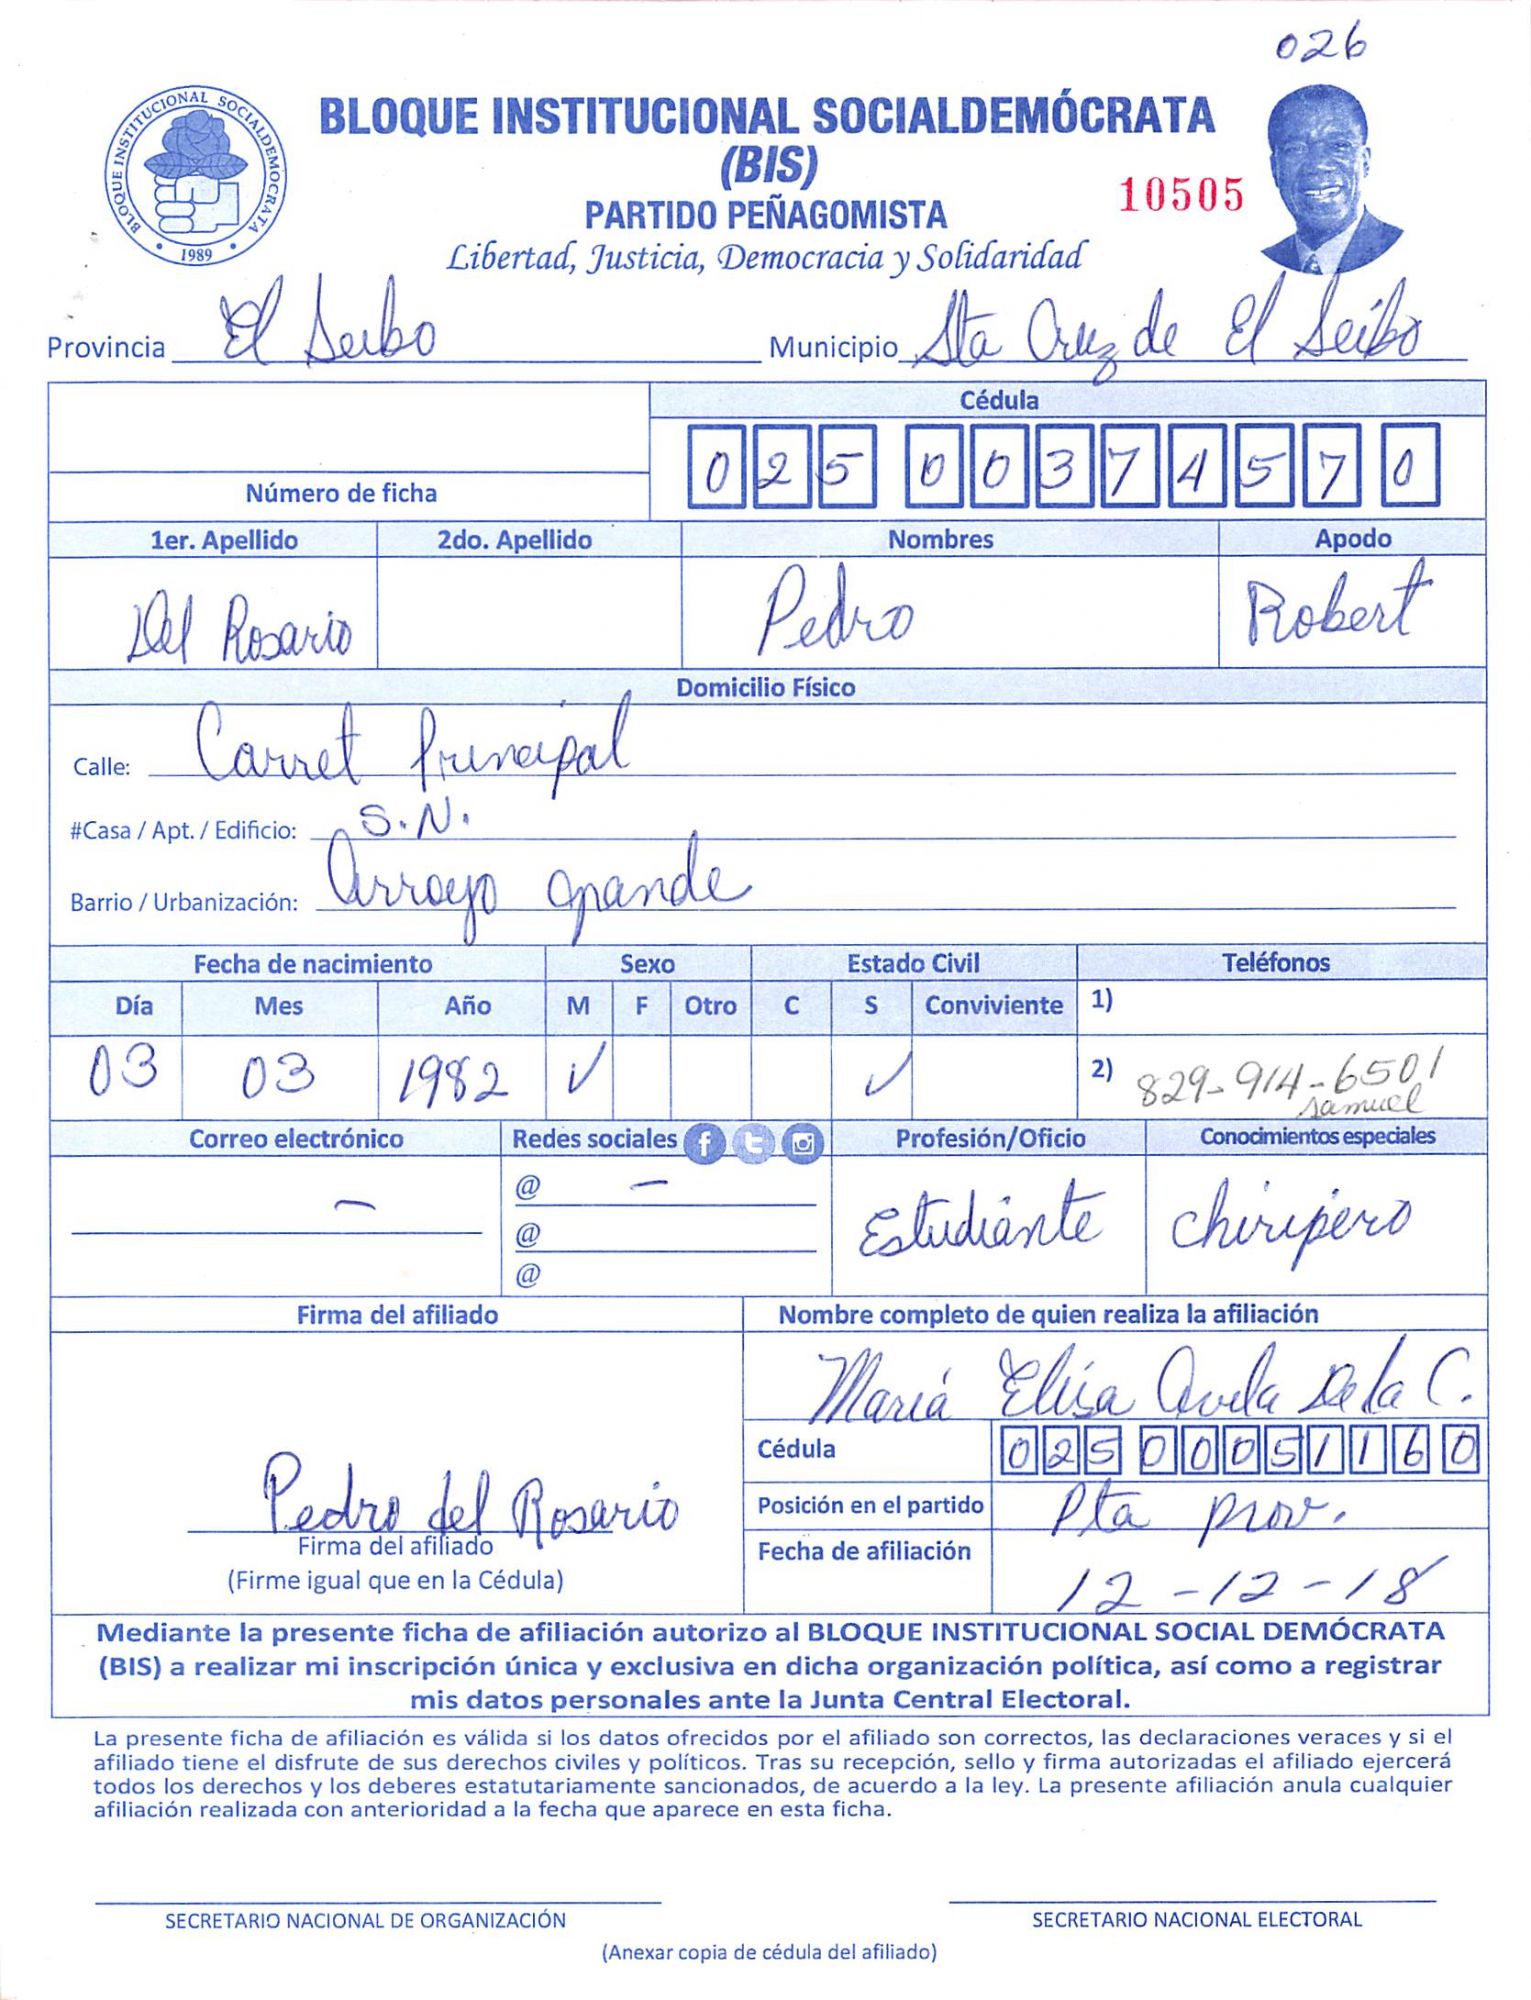 026
BLOQUE INSTITUCIONAL SOCIALDEMOCRATA
1989
BLOQUE INSTITUCIONAL SOCIALDEMÓCRATA
(BIS)
10505
PARTIDO PEÑAGOMISTA
Libertad, Justicia, Democracia y Solidaridad
Provincia El Seibo Municipio Sta Cruz de El Seibo
Cédula
025 0037457 0
Número de ficha
1er. Apellido 2do. Apellido Nombres Apodo
Del Rosario Pedro Robert
Domicilio Físico
Calle: Carret Principal
#Casa / Apt. / Edificio: S.N.
Barrio / Urbanización: Arroyo grande
Fecha de nacimiento Sexo Estado Civil Teléfonos
Día Mes Año M F Otro C S Conviviente 1)
03 03 1982 ✓ ✓ 2) 829-914-6501
Samuel
Correo electrónico Redes sociales Profesión/Oficio Conocimientos especiales
- @ - Estudiante chiripero
@
@
Firma del afiliado Nombre completo de quien realiza la afiliación
María Elisa Avila De la C.
Cédula 025 0005116 0
Pedro del Rosario
Posición en el partido Pta prov.
Firma del afiliado
Fecha de afiliación 12-12-18
(Firme igual que en la Cédula)
Mediante la presente ficha de afiliación autorizo al BLOQUE INSTITUCIONAL SOCIAL DEMÓCRATA
(BIS) a realizar mi inscripción única y exclusiva en dicha organización política, así como a registrar
mis datos personales ante la Junta Central Electoral.
La presente ficha de afiliación es válida si los datos ofrecidos por el afiliado son correctos, las declaraciones veraces y si el
afiliado tiene el disfrute de sus derechos civiles y políticos. Tras su recepción, sello y firma autorizadas el afiliado ejercerá
todos los derechos y los deberes estatutariamente sancionados, de acuerdo a la ley. La presente afiliación anula cualquier
afiliación realizada con anterioridad a la fecha que aparece en esta ficha.
SECRETARIO NACIONAL DE ORGANIZACIÓN SECRETARIO NACIONAL ELECTORAL
(Anexar copia de cédula del afiliado)